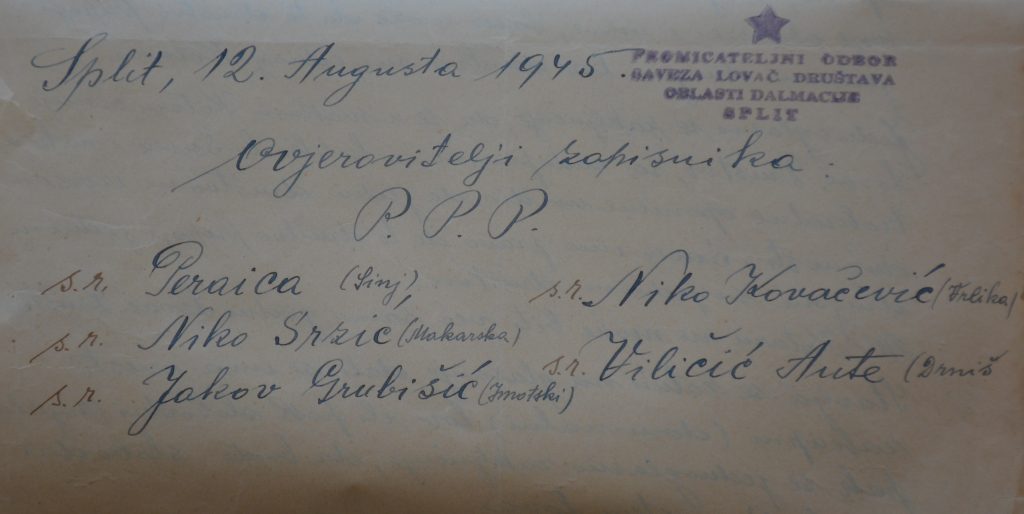 Split, 12. Augusta 1945.
PROMICATELJNI ODBOR
SAVEZA LOVAČ DRUŠTAVA
OBLASTI DALMACIJE
SPLIT
Ovjerovitelji zapisnika:
P. P. P.
s. r. Peraica (Sinj)
s. r. Niko Srzić (Makarska)
s. r. Jakov Grubišić (Imotski)
s. r. Niko Kovačević (Vrlika)
s. r. Viličić Ante (Drniš